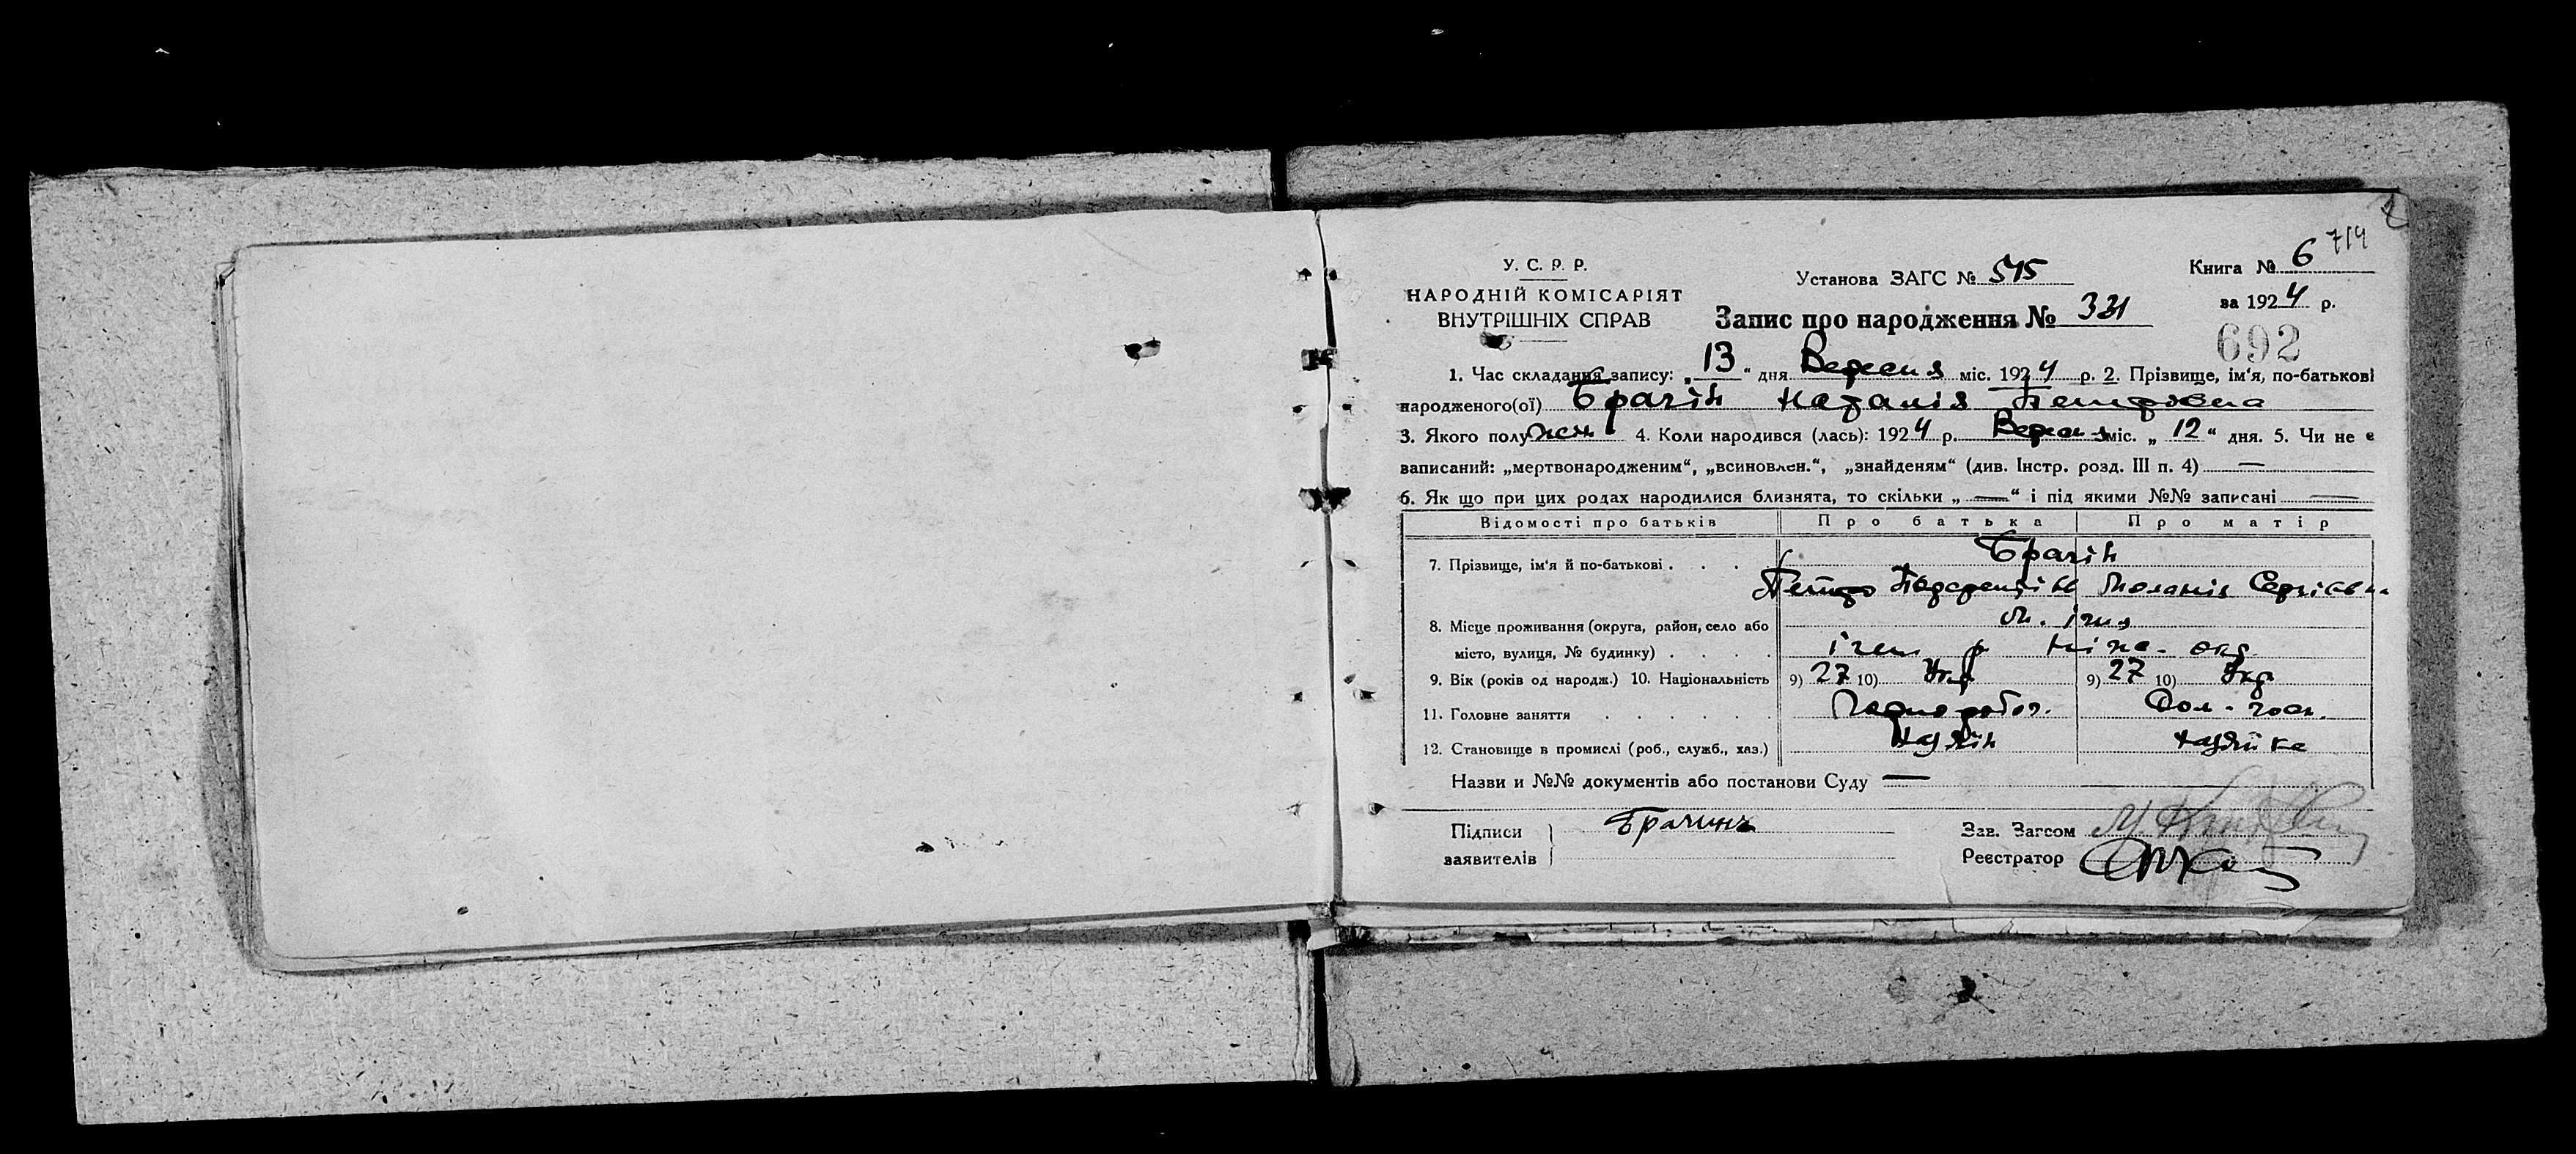 714
У. С. Р. Р.
НАРОДНІЙ КОМІСАРІЯТ
ВНУТРІШНІХ СПРАВ
Установа ЗАГС № 515
Книга № 6
за 1924 р.
Запис про народження № 321
692
1. Час складання запису: „13“ дня Вересня міс. 1924 р. 2. Прізвище, ім‘я, по-батькові
народженого(ої) Брагін Наталія Петровна
3. Якого полу жен 4. Коли народився (лась): 1924 р. Вересня міс. „12“ дня. 5. Чи не є
записаний: „мертвонародженим“, „всиновлен.“, „знайденям“ (див. Інстр. розд. III п. 4) —
6. Як що при цих родах народилися близнята, то скільки „—“ і під якими №№ записані —
Відомості про батьків Про батька Про матір
7. Прізвище, ім‘я й по-батькові . . . Брагін
Петро Меланія Сергієвн.
8. Місце проживання (округа, район, село або м. Ічня
місто, вулиця, № будинку) . . . . Ічен р Ніже. окр.
9. Вік (років од народж.) 10. Національність 9) 27 10) Укр 9) 27 10) Укр
11. Головне заняття . . . . . . Дом-госп.
12. Становище в промислі (роб., служб., хаз.) Хазяїн Хазяйка
Назви и №№ документів або постанови Суду —
Підписи
заявителів
Брагинъ
Зав. Загсом
Реєстратор